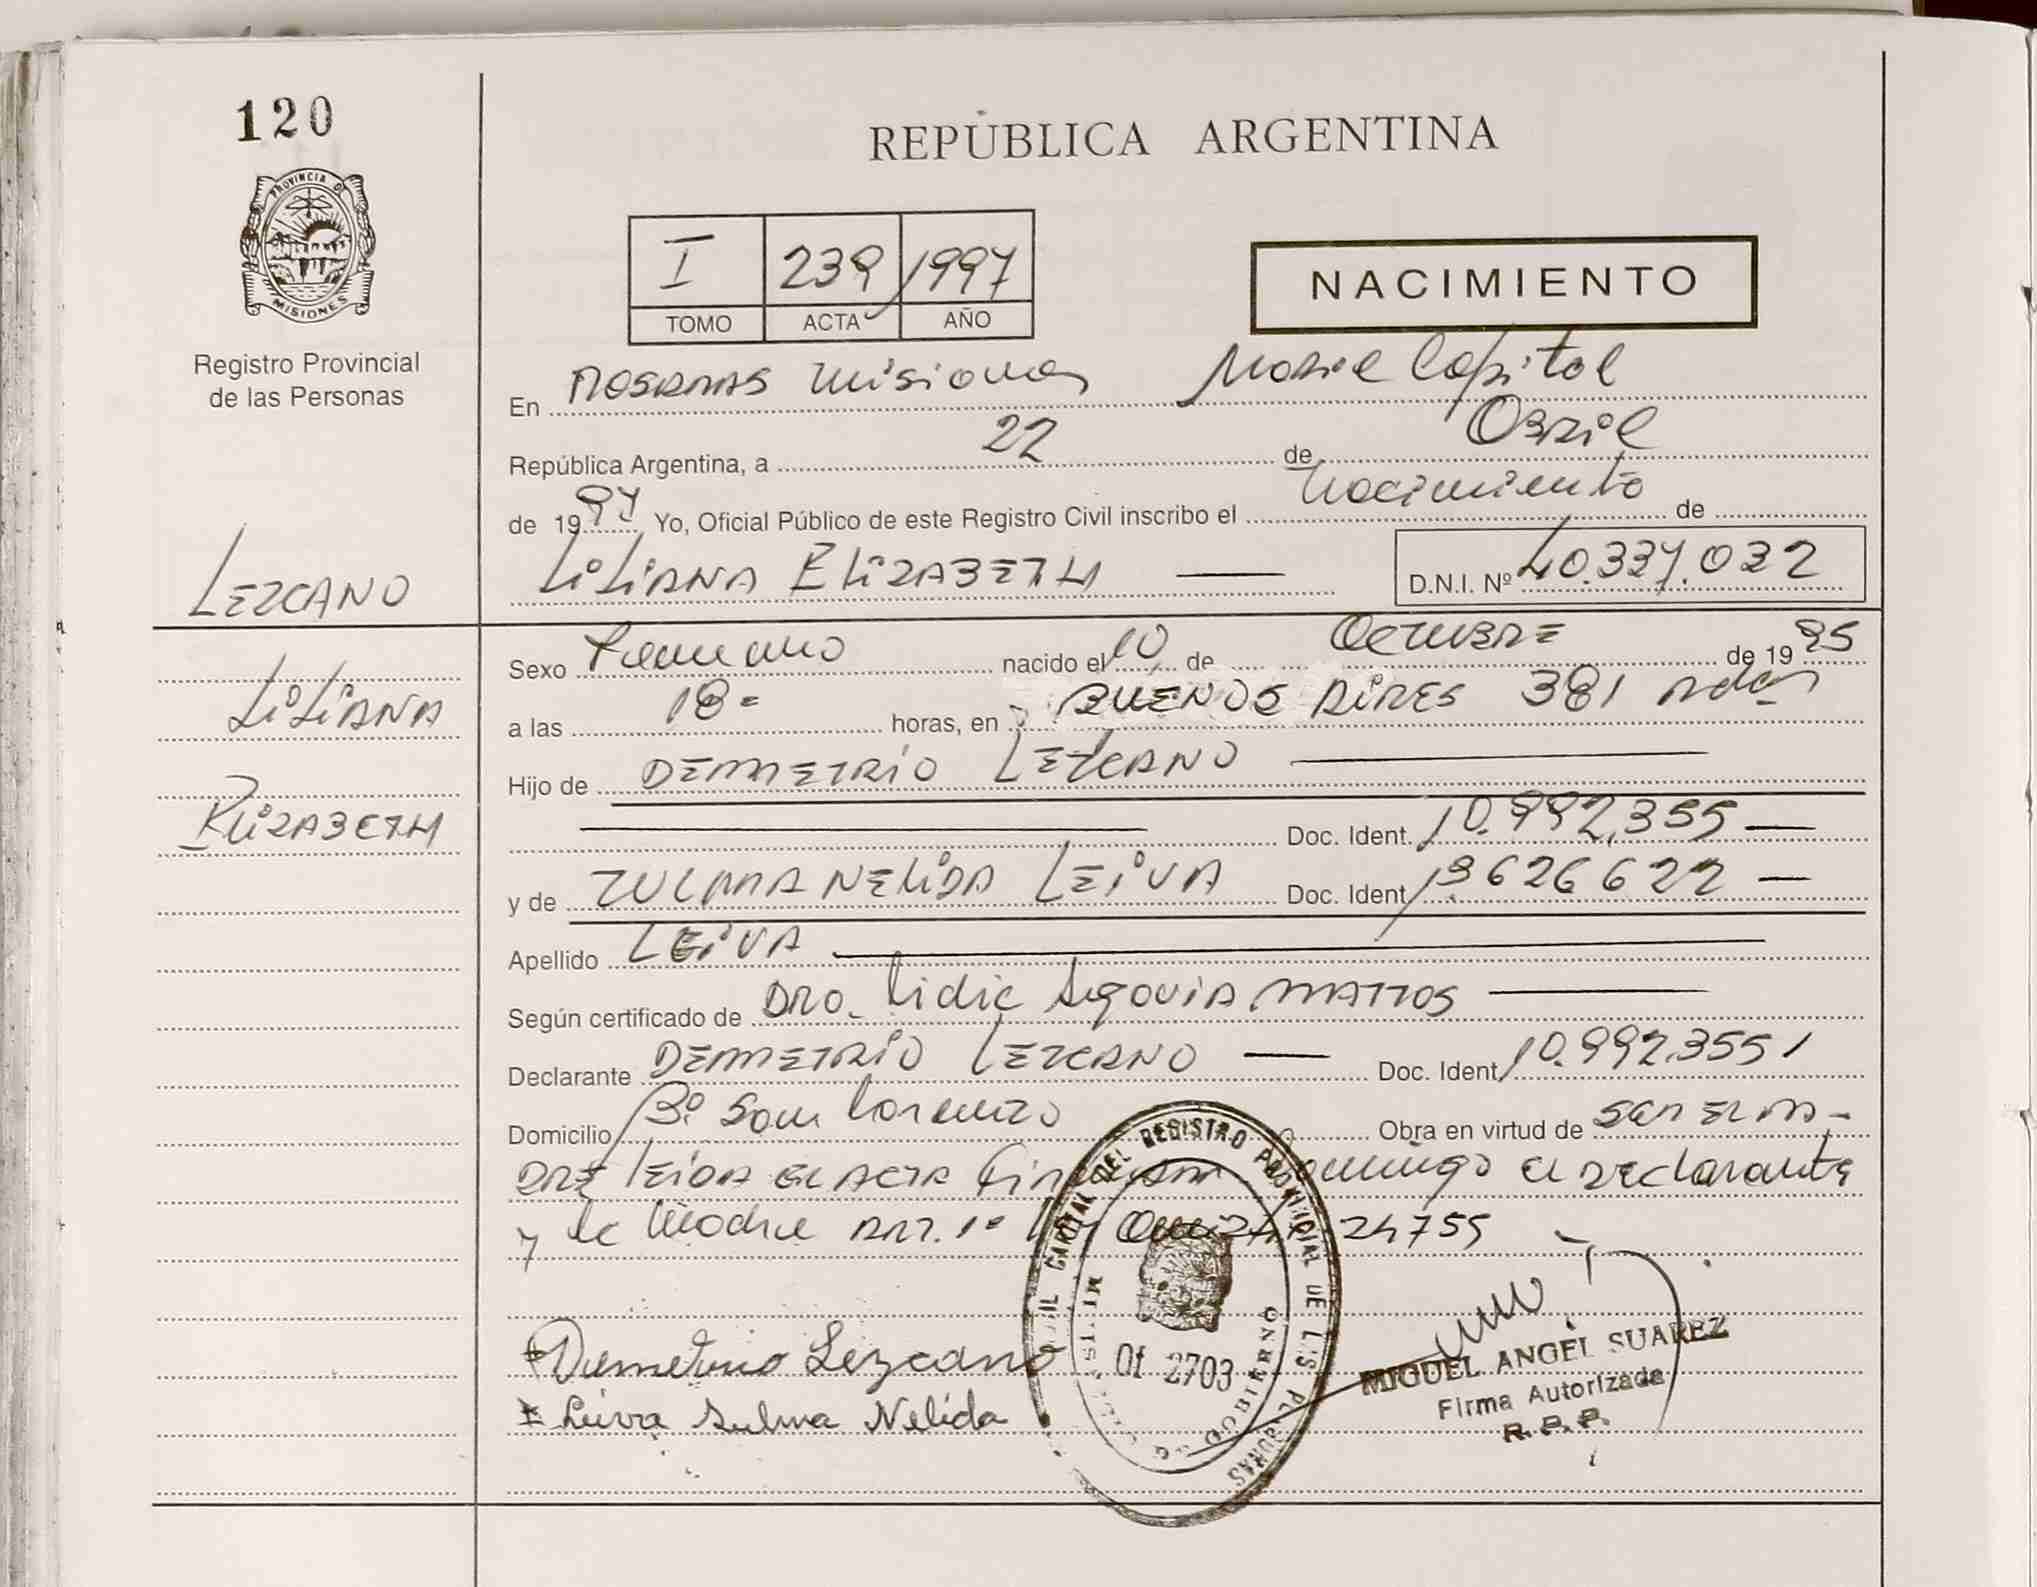 120
PROVINCIA DE
MISIONES
Registro Provincial
de las Personas
LEZCANO
LiLiANA
ELIZABETH
REPÚBLICA ARGENTINA
I 239 1997
TOMO ACTA AÑO
NACIMIENTO
En Posadas Misiones Capital
República Argentina, a 22 de Abril
de 1997 Yo, Oficial Público de este Registro Civil inscribo el Nacimiento de
LiLiANA ELIZABETH D.N.I. Nº 40.337.032
Sexo Femenino nacido el 10 de OCTUBRE de 1995
a las 18= horas, en BUENOS AIRES 381 Pdas
Hijo de DEMETRIO LEZCANO
Doc. Ident. 10.992.355
y de ZULMA NELIDA LEIVA Doc. Ident. 13626622
Apellido LEIVA
Según certificado de DRA. Lidia Segovia MATTOS
Declarante DEMETRIO LEZCANO Doc. Ident. 10.992.355
Domicilio Bº San Lorenzo Obra en virtud de ser el pa-
DRE leida el ACTA conmigo el declarante
y la Madre ART. 1º 24755
Demetrio Lezcano
Leiva Sulma Nelida
CAPITAL DEL REGISTRO PROVINCIAL DE LAS PERSONAS
GOBIERNO
Of 2703
MIGUEL ANGEL SUAREZ
Firma Autorizada
R.P.P.